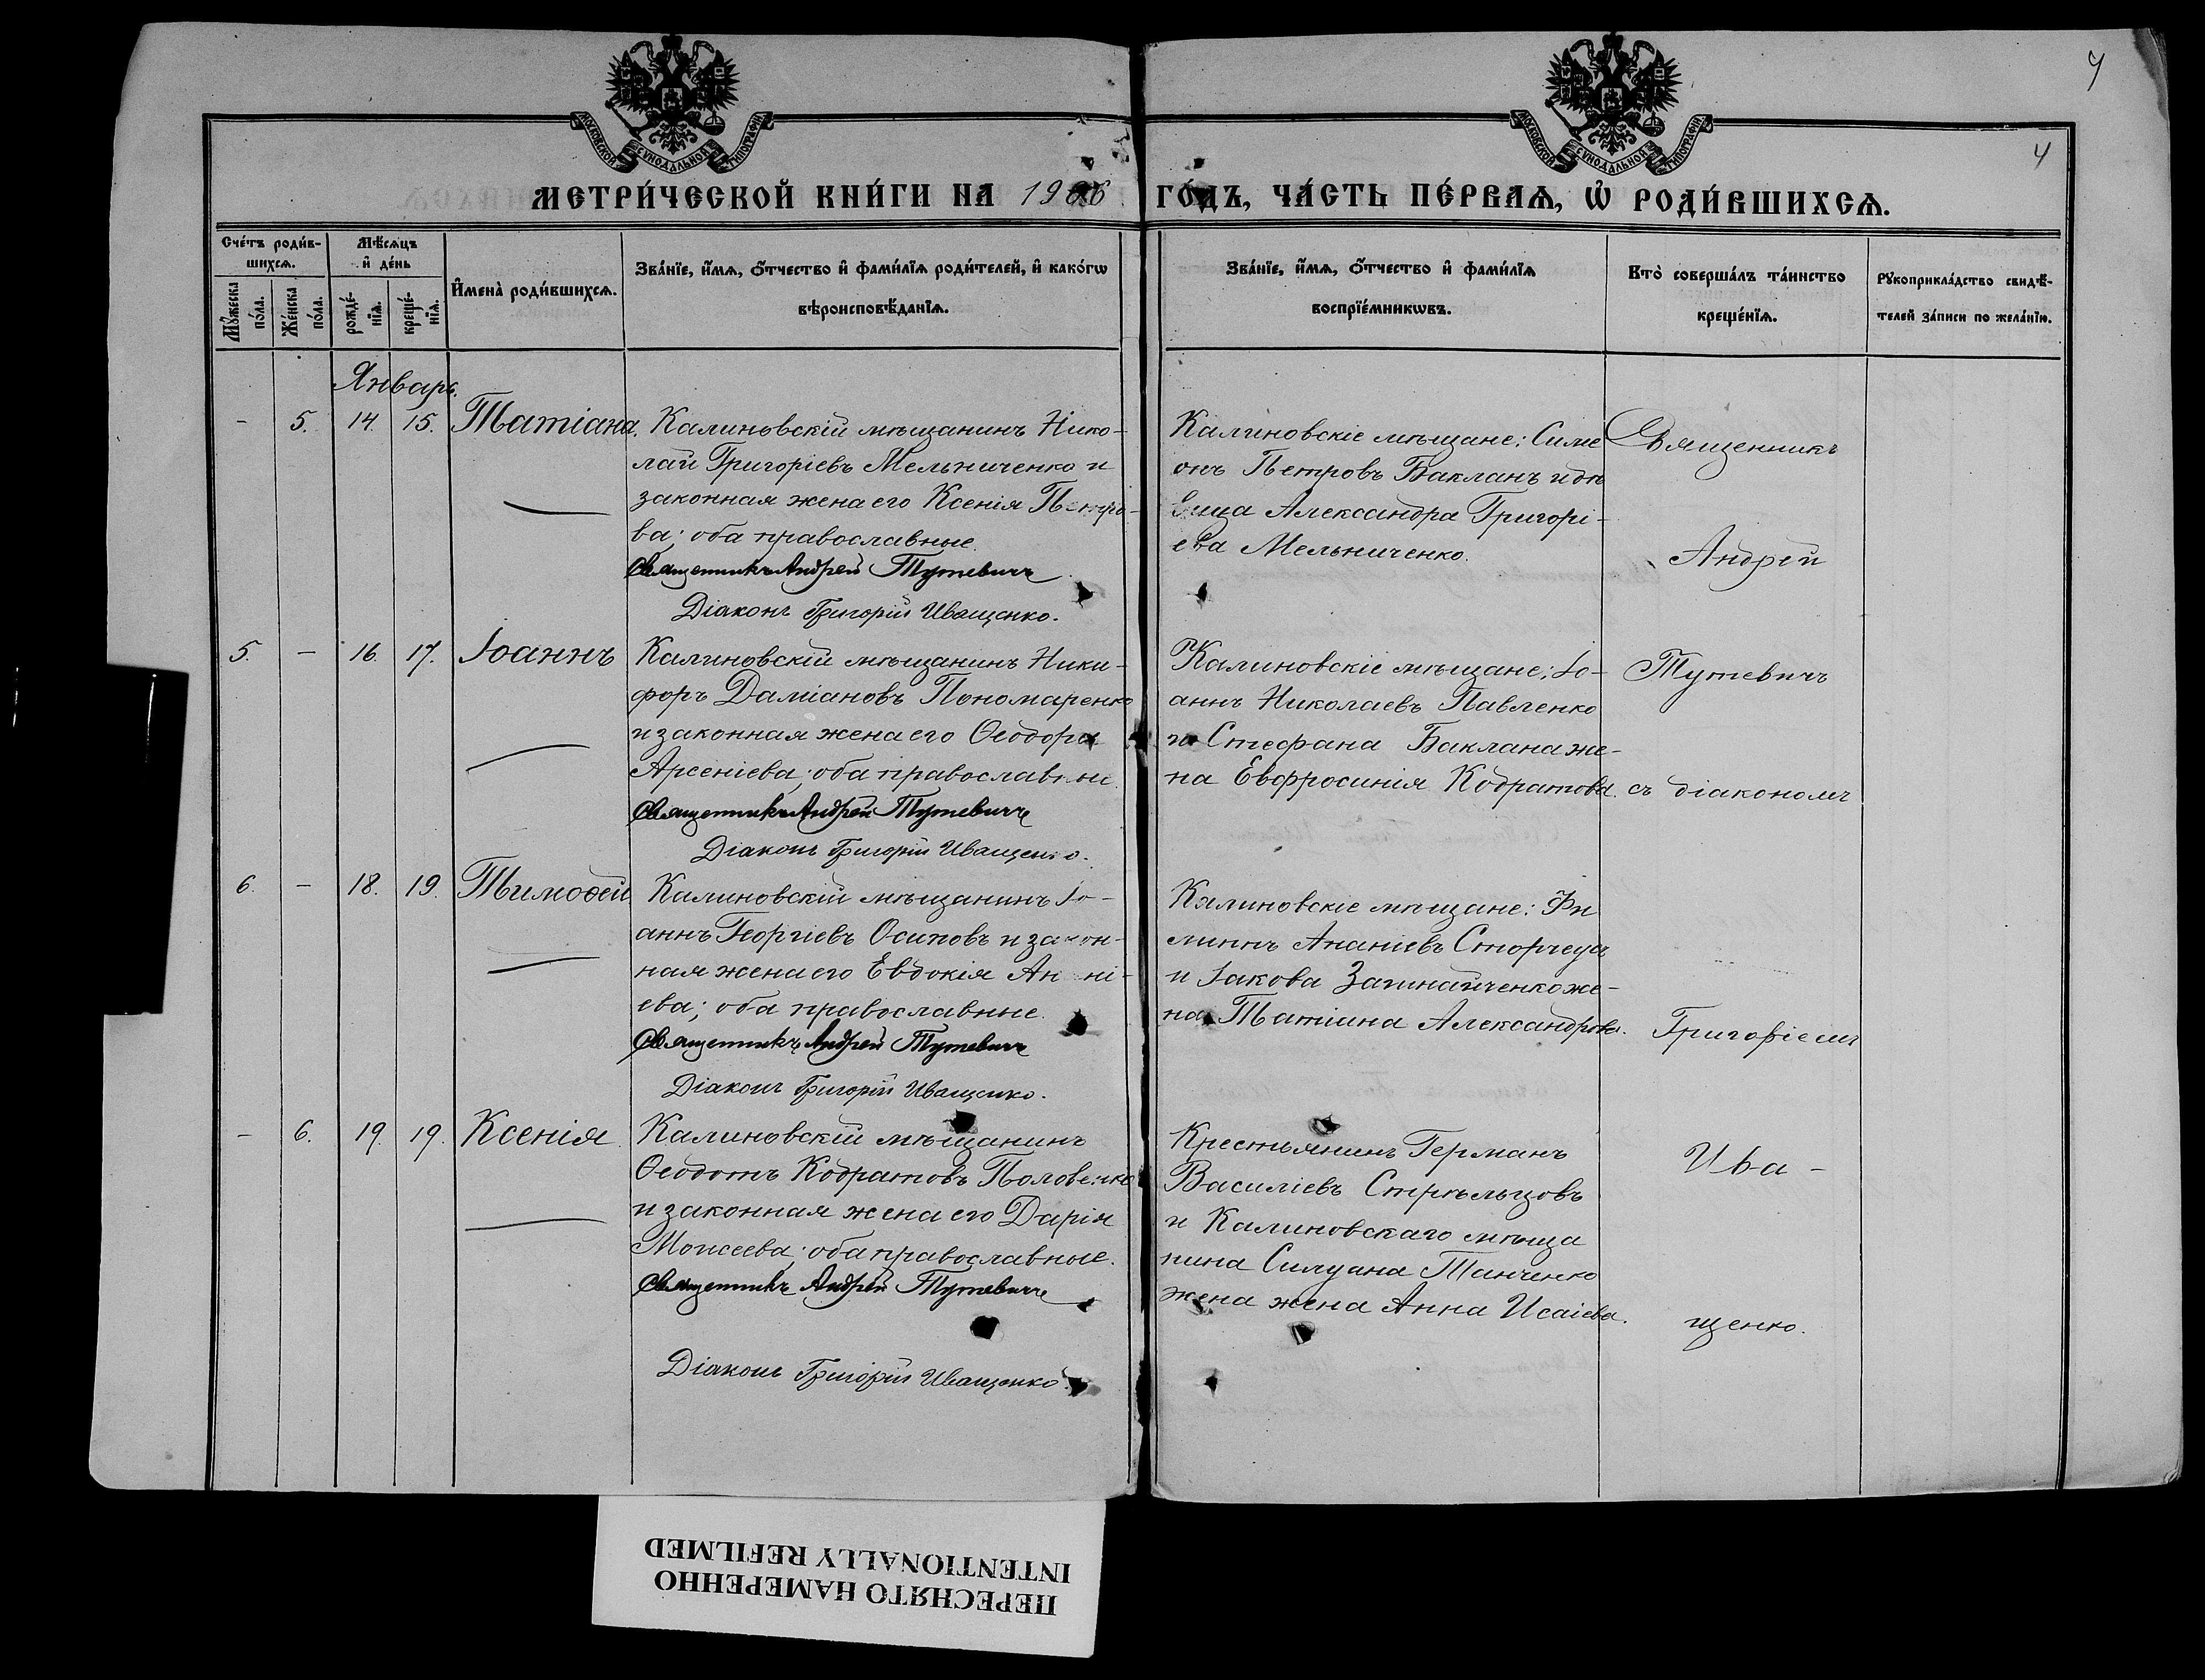 4
4
МОСКОВСКОЙ СѴНОДАЛЬНОЙ ТИПОГРАФІИ
МОСКОВСКОЙ СѴНОДАЛЬНОЙ ТИПОГРАФІИ
МЕТРИ́ЧЕСКОЙ КНИ́ГИ НА 1906 ГО́ДЪ, ЧА́СТЬ ПЕ́РВАѦ, Ѡ҆ РОДИ́ВШИХСѦ.
Сче́тъ роди́в-
шихсѧ.
Мꙋ́жеска
по́ла.
Же́нска
по́ла.
Мѣ́сѧцъ
и҆ де́нь
рожде́-
нїѧ.
креще́-
нїѧ.
И҆мена̀ роди́вшихсѧ.
Зва́нїе, и҆́мѧ, ѻ҆́тчество и҆ фами́лїѧ роди́телей, и҆ како́гѡ
вѣроисповѣ́данїѧ.
Зва́нїе, и҆́мѧ, ѻ҆́тчество и҆ фами́лїѧ
воспрїе́мникѡвъ.
Кто̀ соверша́лъ та́инство
креще́нїѧ.
Рꙋкоприкла́дство свидѣ́-
телей за́писи по жела́нїю.
Январь.
- 5. 14. 15. Татіана.
Калиновскій мѣщанинъ Нико-
лай Григоріевъ Мельниченко и
законная жена его Ксенія Петро-
ва; оба православные.
Священникъ Андрей Тутевичъ
Діаконъ Григорій Иващенко.
Калиновскіе мѣщане: Симе
онъ Петровъ Бакланъ и дѣ
вица Александра Григорі-
ева Мельниченко.
Священникъ
Андрей
5. - 16. 17. Іоаннъ
Калиновскій мѣщанинъ Ники-
форъ Даміановъ Пономаренко
и законная жена его Ѳеодора
Арсеніева; оба православные.
Священникъ Андрей Тутевичъ
Діаконъ Григорій Иващенко.
Калиновскіе мѣщане: Іо-
аннъ Николаевъ Павленко
и Стефана Баклана же-
на Евфросинія Кодратова.
Тутевичъ
съ діакономъ
6. - 18. 19. Тимоѳей
Калиновскій мѣщанинъ Іо-
аннъ Георгіевъ Осиповъ и закон-
ная жена его Евдокія Анані-
ева; оба православные.
Священникъ Андрей Тутевичъ
Діаконъ Григорій Иващенко.
Калиновскіе мѣщане: Фи
липпъ Ананіевъ
и Іакова же-
на Татіана Александрова.
Григоріемъ
- 6. 19. 19. Ксенія.
Калиновскій мѣщанинъ
Ѳеодотъ Кодратовъ Половенко
и законная жена его Дарія
Моисеева; оба православные.
Священникъ Андрей Тутевичъ
Діаконъ Григорій Иващенко.
Крестьянинъ Германъ
Василіевъ Стрѣльцовъ
и Калиновскаго мѣща
нина Силуана Танченко
жена жена Анна Исаіева.
Ива-
щенко.
ПЕРЕСНЯТО НАМЕРЕННО
INTENTIONALLY REFILMED